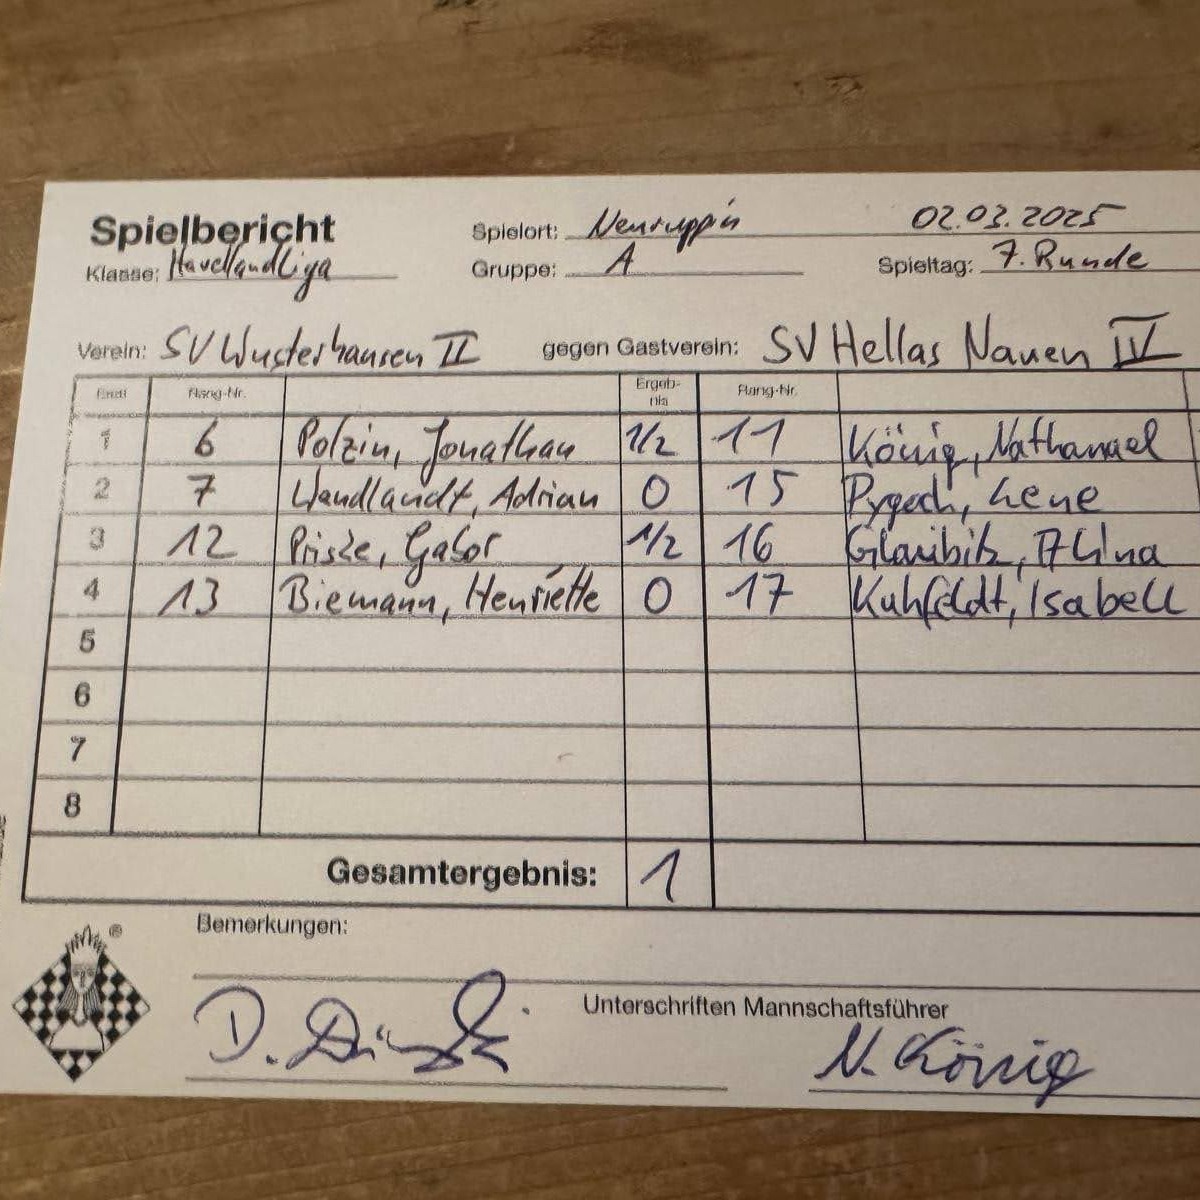 Spielbericht Spielort: Neuruppin 02.03.2025
Klasse: HavellandLiga Gruppe: A Spieltag: 7. Runde
Verein: SV Wusterhausen II gegen Gastverein: SV Hellas Nauen IV
Brett Rang-Nr. Ergeb-nis Rang-Nr.
1 6 Polzin, Jonathan 1/2 11 König, Nathanael
2 7 Wendlandt, Adrian 0 15 Lene
3 12 Gabor 1/2 16 Glaubitz, Alina
4 13 Biemann, Henriette 0 17 Kuhfeldt, Isabell
5
6
7
8
Gesamtergebnis: 1
®
Bemerkungen:
Unterschriften Mannschaftsführer
D. N. König